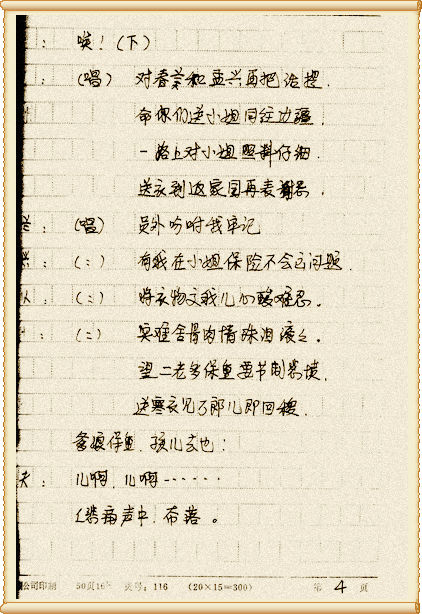 ：唉！（下）
：（唱）对春兰和孟兴再把话提，
命你们送小姐同往边疆，
一路上对小姐照料仔细
送衣到返家园再表谢恩。
：（唱）员外吩咐我牢记
：（〃）有我在小姐保险不会出问题
：（〃）将衣物交我儿心酸难忍。
：（〃）实难舍骨肉情珠泪滚滚
望二老多保重要节制悲愤，
送寒衣见了郎儿即回程，
爹娘保重，孩儿去也：
夫：儿啊，儿啊……
（悲痛声中，布落。
公司印制 50页16 页号：116 （20×15=300） 第 4 页